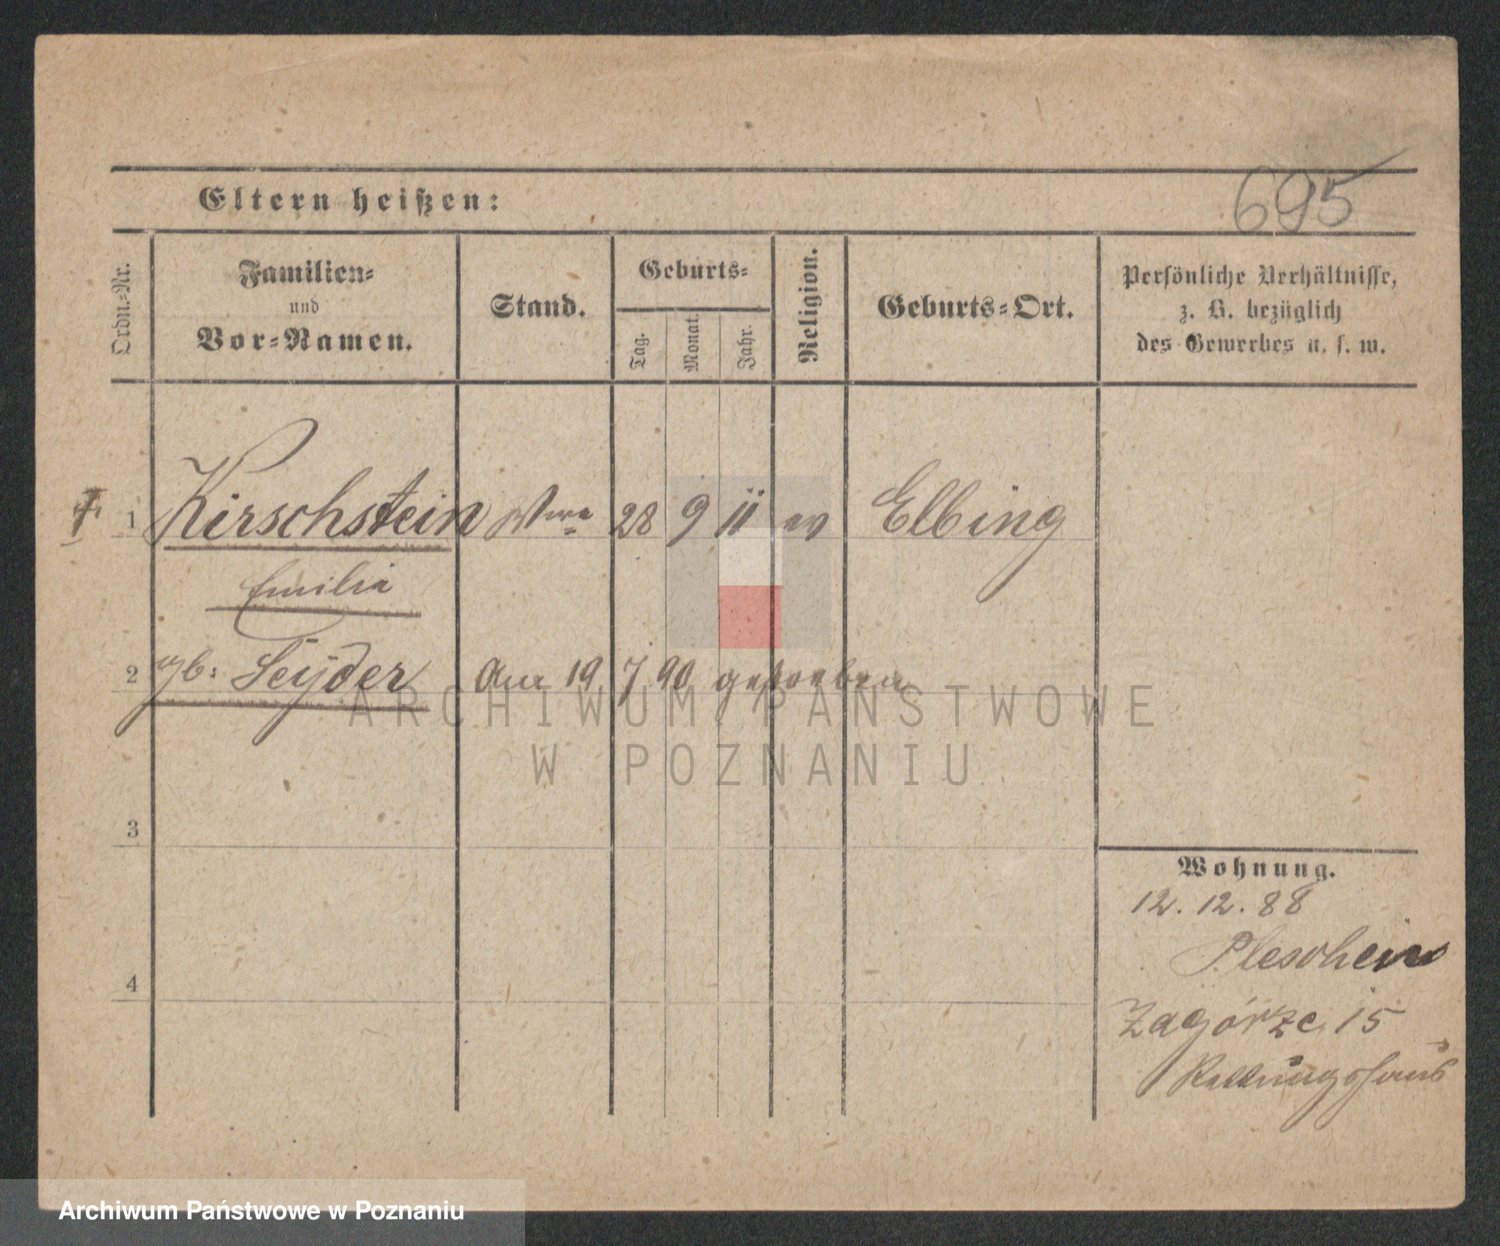 695
Eltern heißen:
Ordn.-Nr.
Familien-
und
Vor-Namen.
Stand.
Geburts-
Tag.
Monat.
Jahr.
Religion.
Geburts-Ort.
Persönliche Verhältnisse,
z. B. bezüglich
des Gewerbes u. s. w.
1 Kirschstein Wwe 28 9 11 ev Elbing
Emilia
2 gb: Seyder Am 19 7 90 gestorben
ARCHIWUM PAŃSTWOWE
W POZNANIU
3
Wohnung.
12. 12. 88
Pleschen
4
Zagórze 15
Rettungshaus
Archiwum Państwowe w Poznaniu